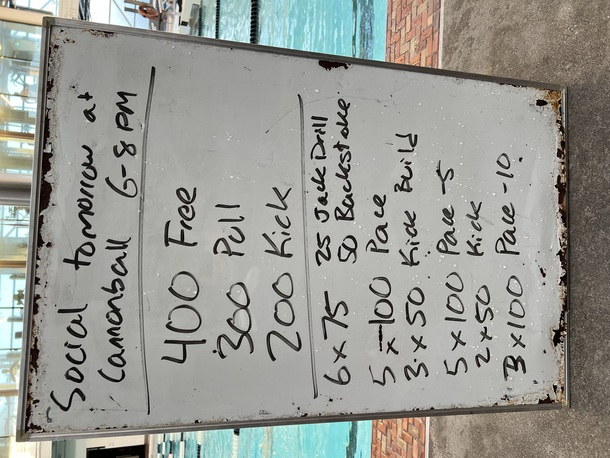 Social tomorrow at
Cannonball 6-8 PM
400 Free
300 Pull
200 Kick
6x75 25 Jack Drill
50 Backstoke
5x100 Pace
3x50 Kick Build
5x100 Pace -5
2x50 Kick
3x100 Pace -10